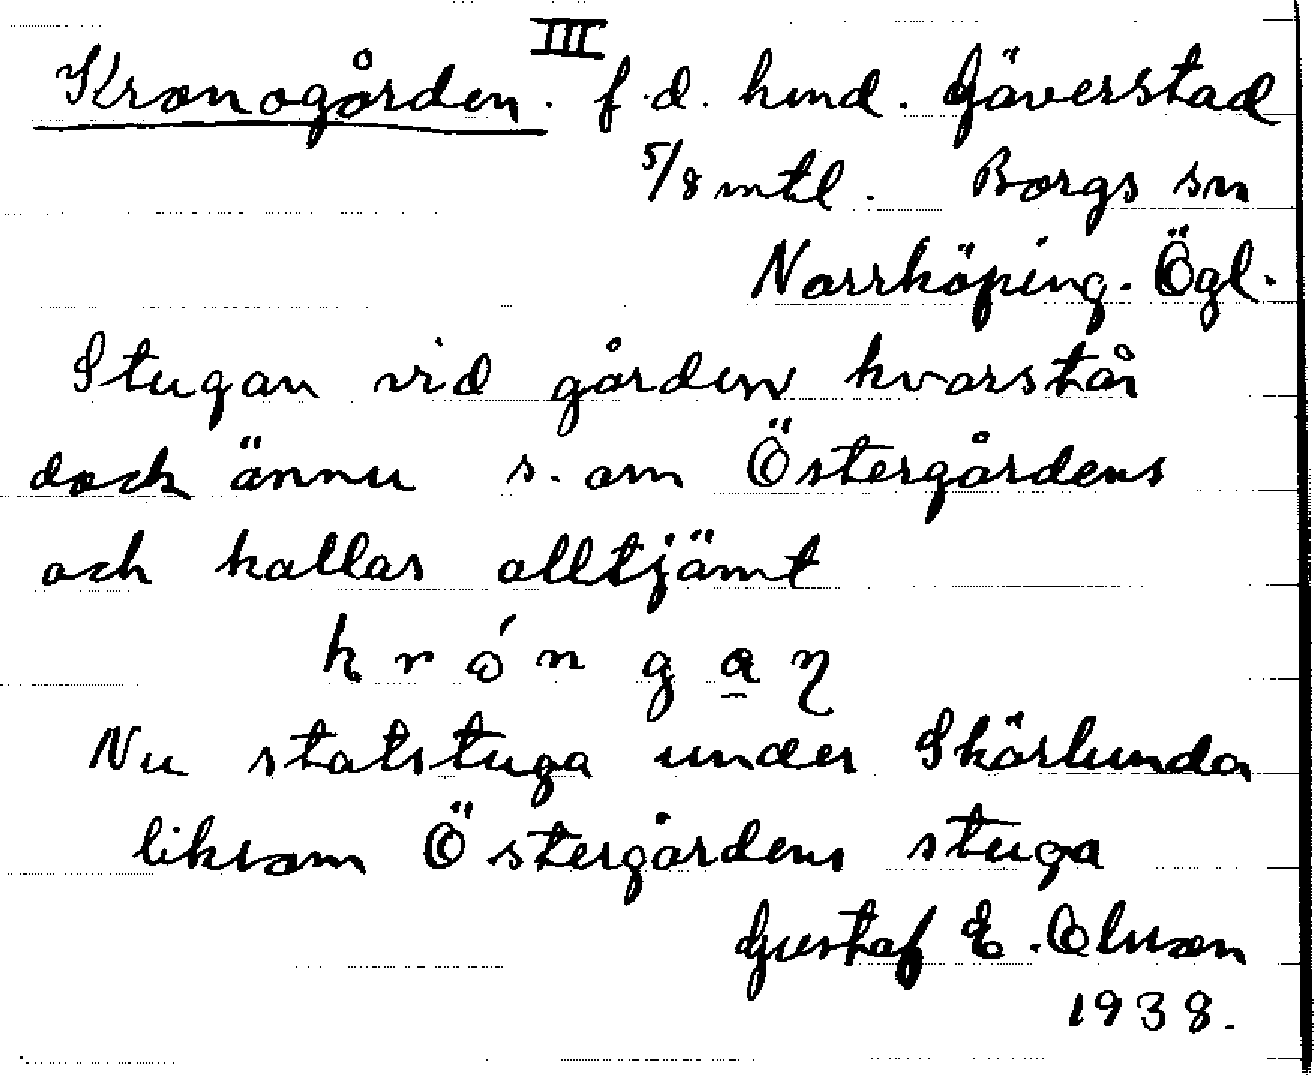 III
Kronogården. f.d. hmd. Gäverstad
5/8 mtl. Borgs sn
Norrköping. Ögl.
Stugan vid gården kvarstår
dock ännu s. om Östergårdens
och kallas alltjämt
krón gaŋ
Nu statstuga under Skärlunda
liksom Östergårdens stuga
Gustaf E. Olsson
1938.